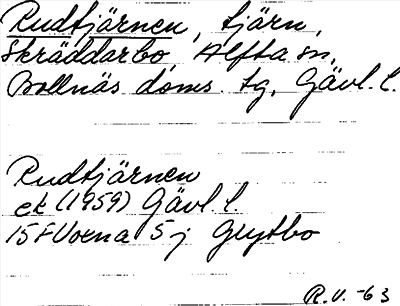 Rudtjärnen, tjärn,
Skräddarbo, Alfta sn,
Bollnäs doms. tg, Gävl. l.
Rudtjärnen
ek (1959) Gävl. l.
15 F Voxna 5 j Grytbo
R.V. -63